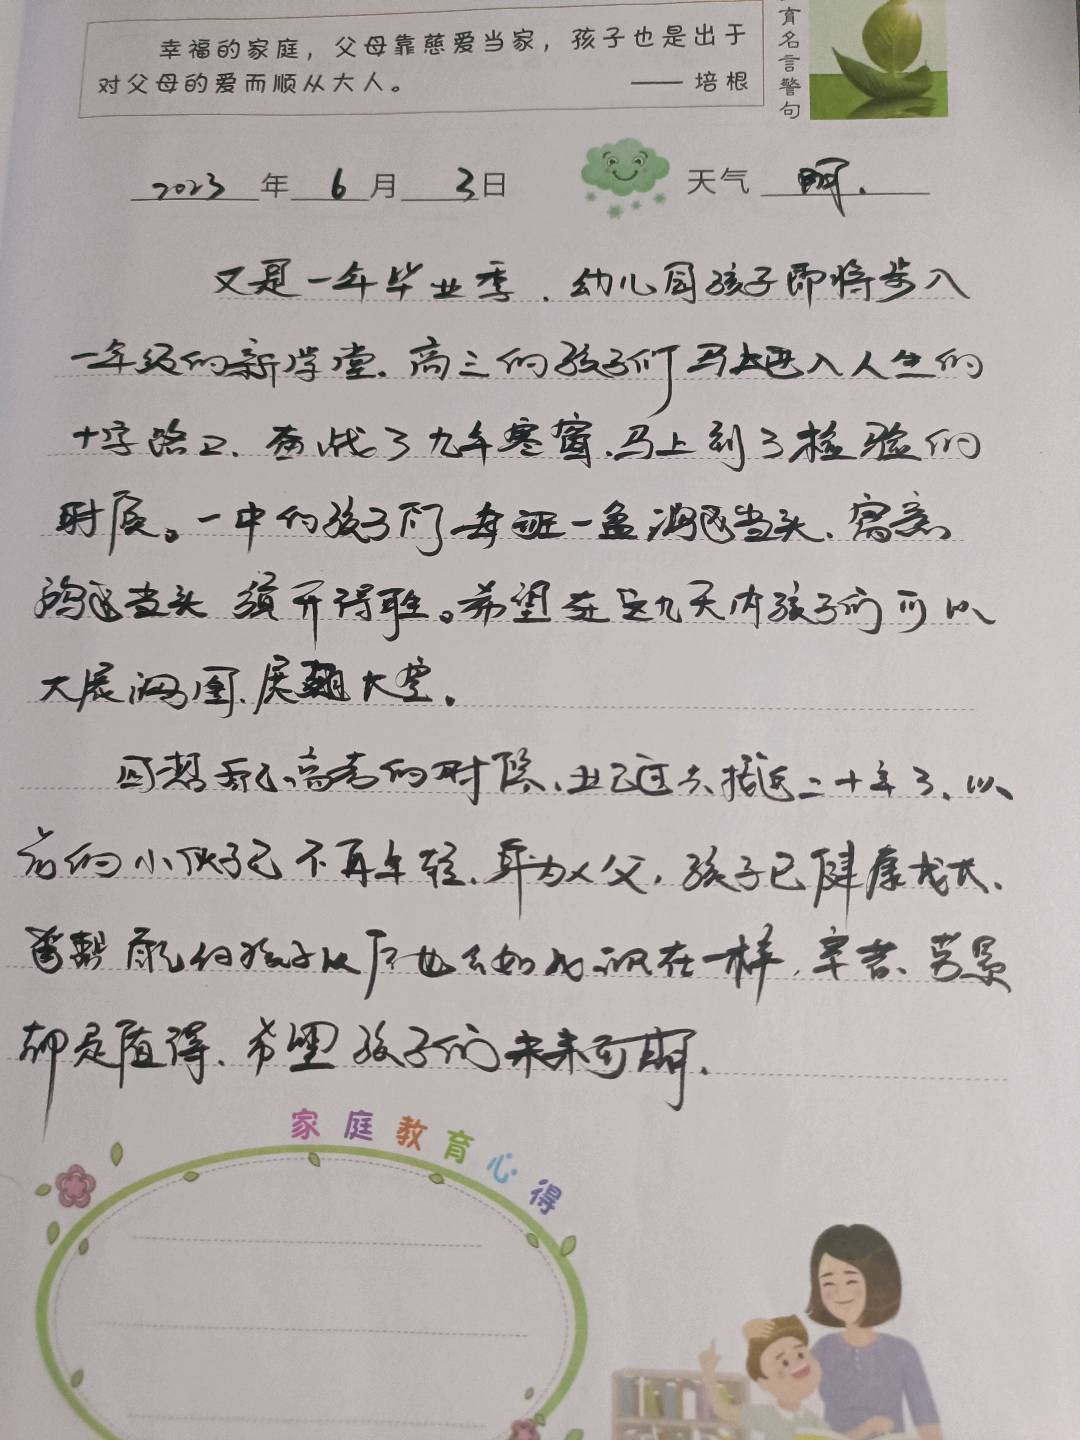 幸福的家庭，父母靠慈爱当家，孩子也是出于
对父母的爱而顺从大人。 —— 培根
育名言警句
2023年 6月 3日 天气
又是一年毕业季，幼儿园孩子即将步入
一年级的新学堂，高三的孩子们马上进入人生的
十字路口，奋战了九年寒窗，马上到了检验的
时候。一中的孩子们每班一盆鸿运当头，寓意
鸿运当头 旗开得胜。希望在这九天内孩子们可以
大展鸿图，展翅大空。
回想自己高考的时候，也已过去接近二十年了，以
前的小伙子已不再年轻，身为人父，孩子已健康成长，
自己的孩子以后也会如我现在一样，辛苦、劳累
都是值得，希望孩子们未来可期。
家庭教育心得